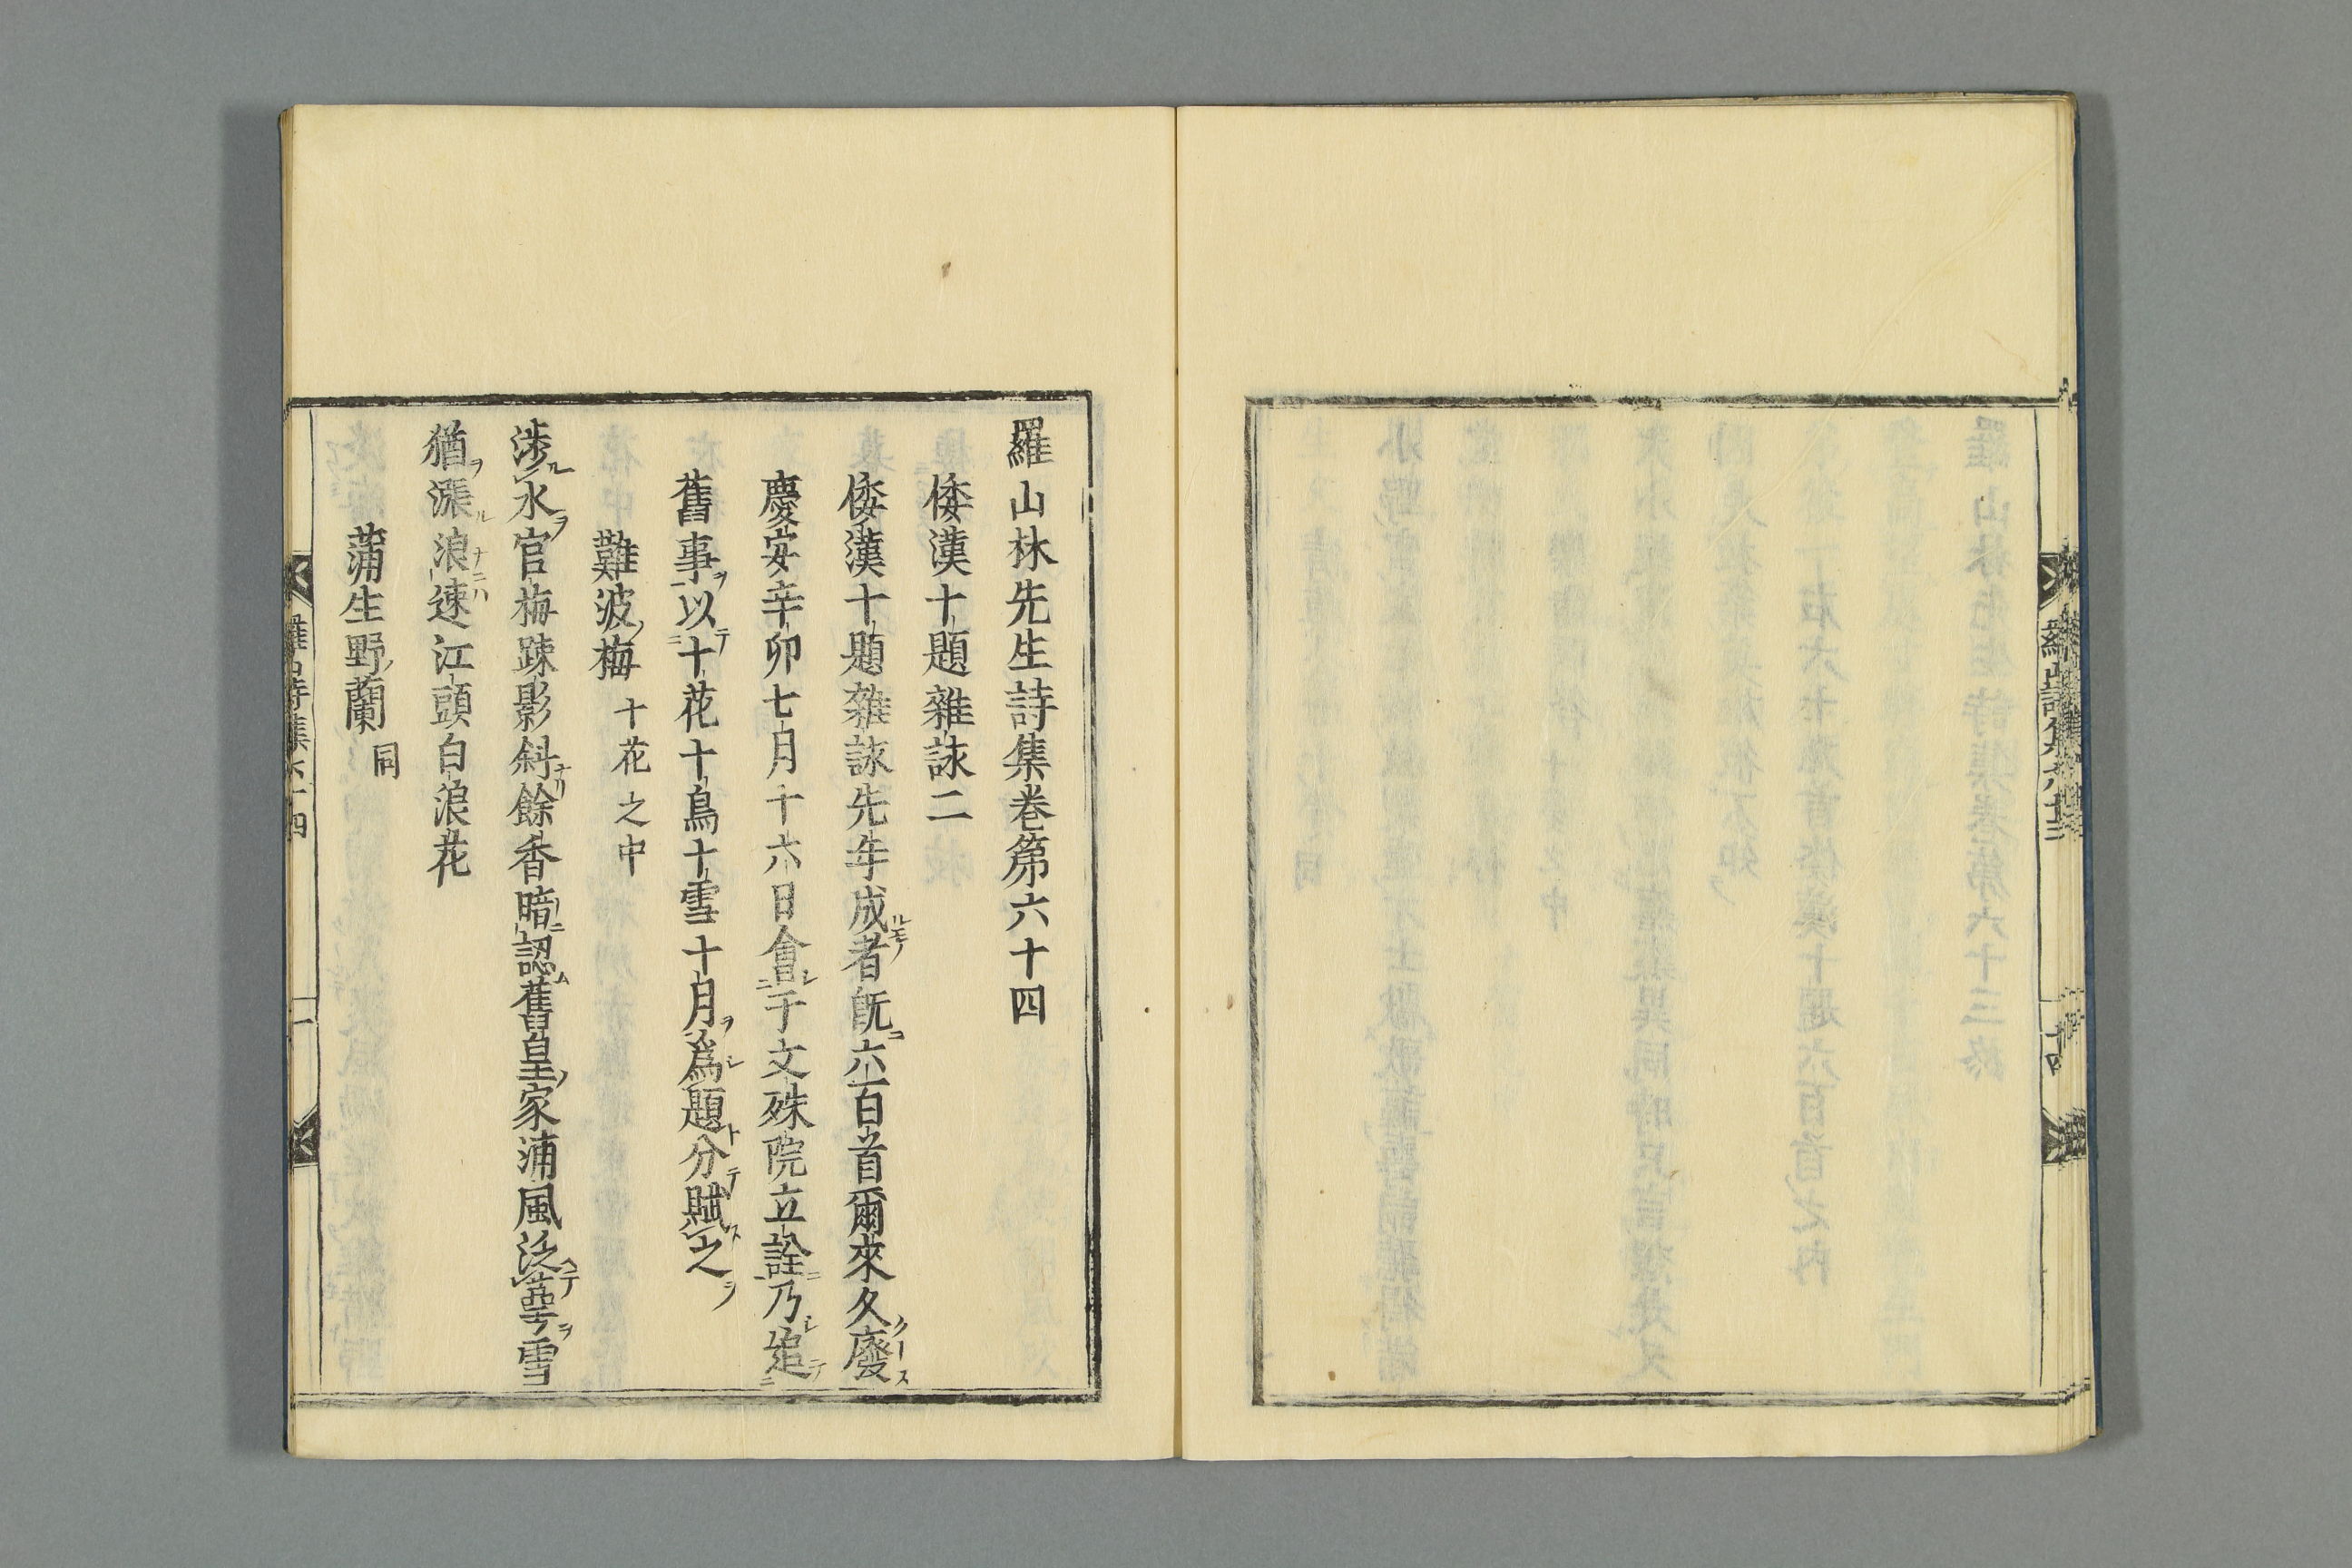 羅山林先生詩集卷第六十四
倭漢十題雜詠二
倭漢十題雜詠先年成者既六百首爾來久廢
慶安辛卯七月十六日會于文殊院立詮乃追
舊事以十花十鳥十雪十月爲題分賦之
難波梅 十花之中
渉水官梅踈影斜餘香暗認舊皇家浦風泛萼雪
猶漲浪速江頭白浪花
蒲生野蘭 同